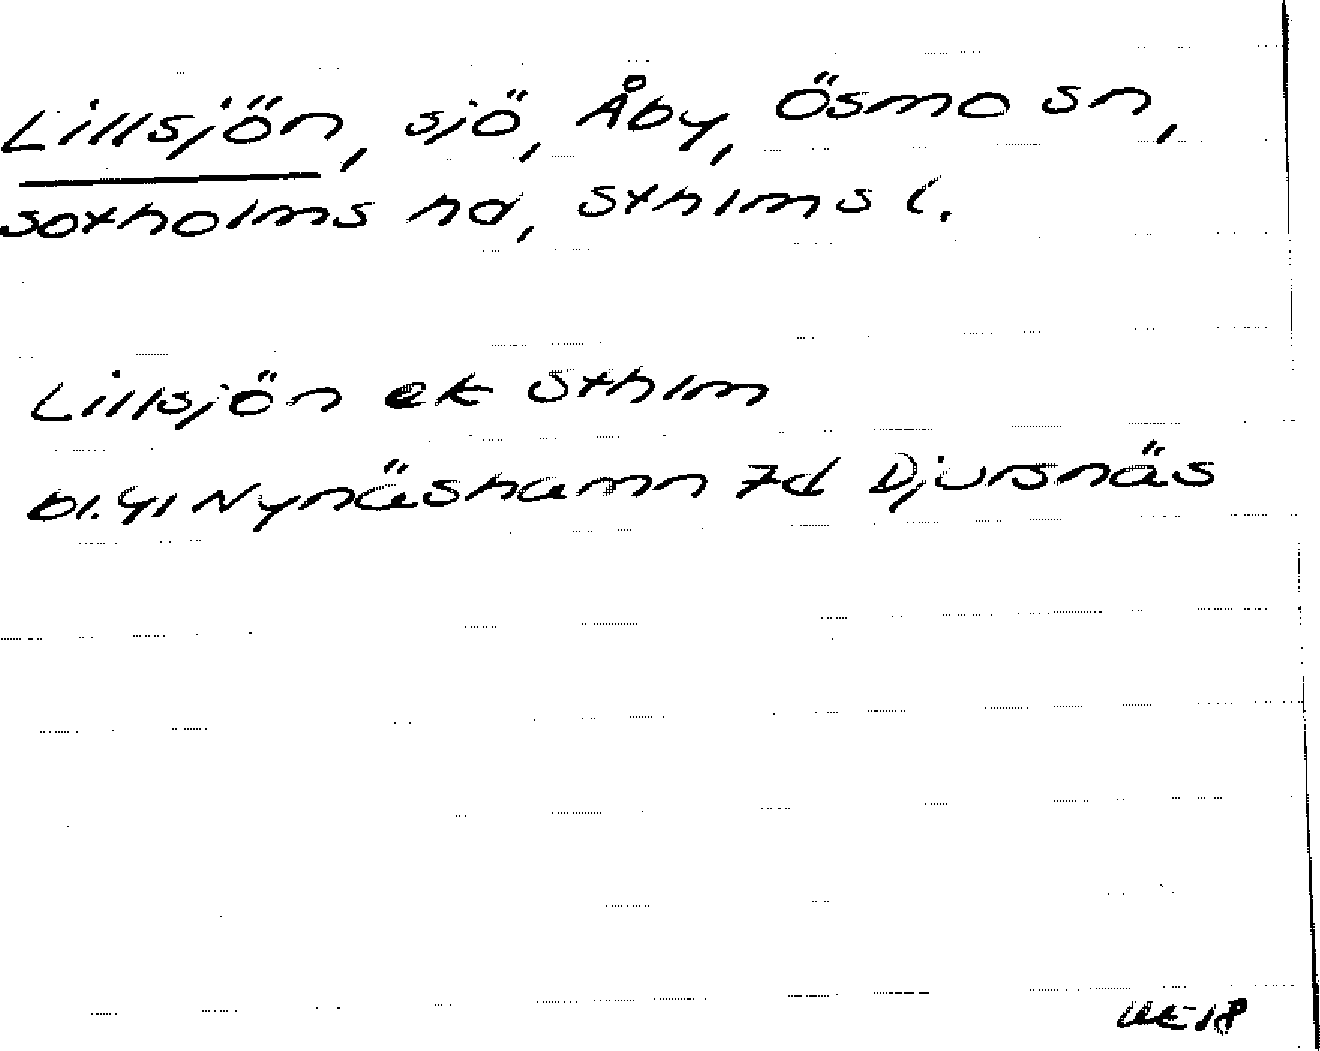 Lillsjön, sjö, Åby, Ösmo sn,
Sotholms hd, Sthlms l.
Lillsjön ek Sthlm
bl. 41 Nynäshamn 7d Djursnäs